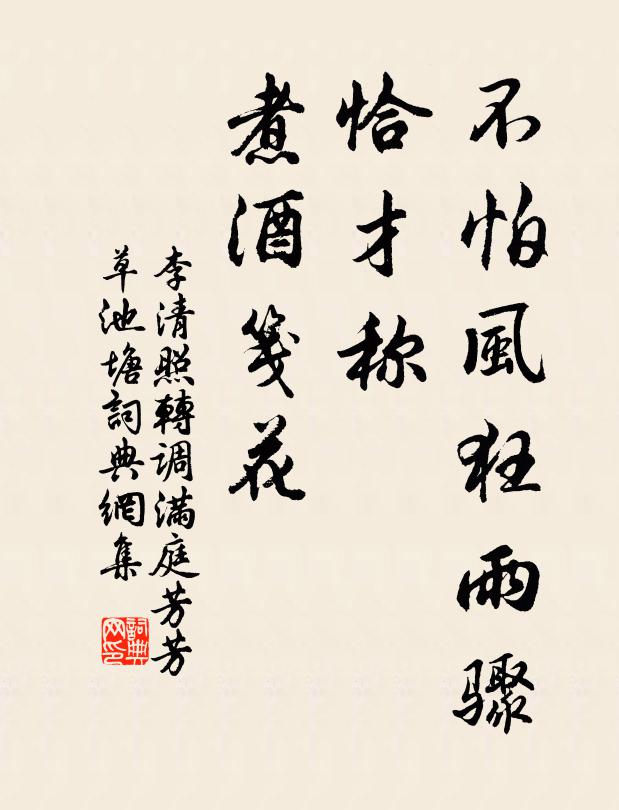 不怕風狂雨骤
恰才称
煮酒笺花
李清照轉调滿庭芳芳
草池塘詞典網集
詞典网印